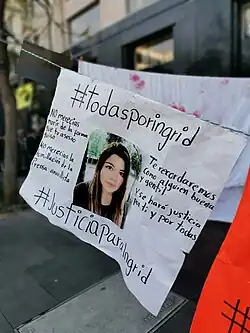 #Todasporingrid
No merecías
morir de la forma
que tu asesino
quiso
No merecías la
humillación de la
prensa amarillista
Te recordaremos
como alguien buena
y gentil
y se hará justicia
por ti, y por todas
#JusticiaParaIngrid
#